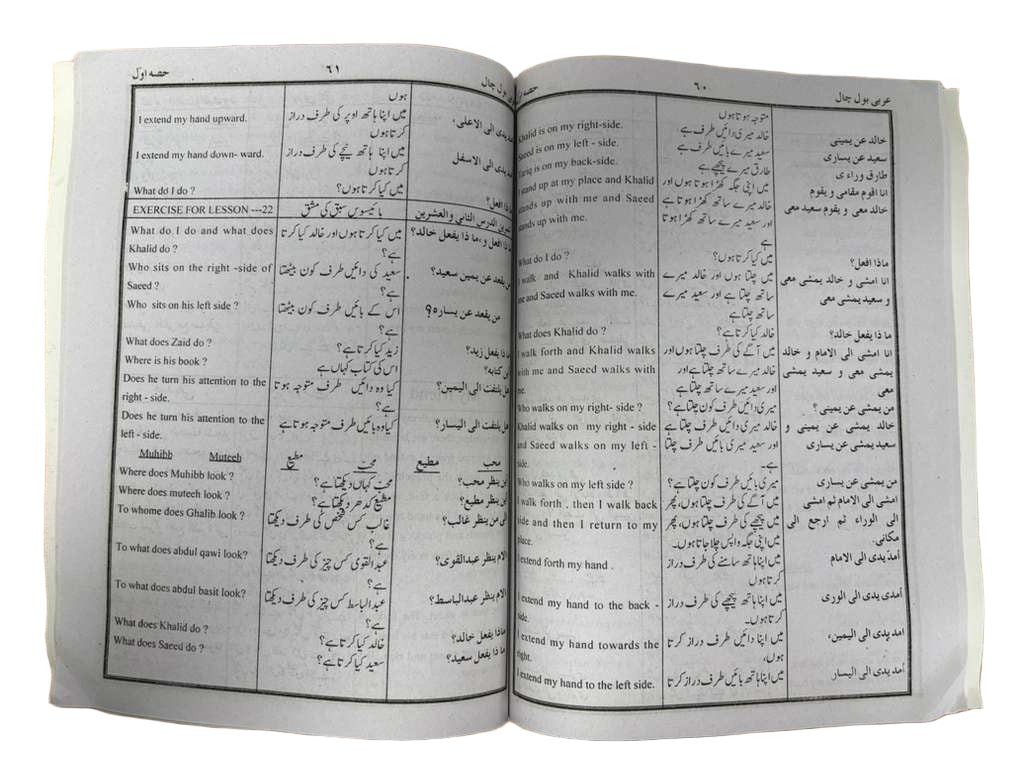 عربی بول چال
۶۰
حصہ
خالد عن يمينى
سعيد عن يسارى
طارق وراء ى
انا اقوم مقامى و يقوم
خالد معى و يقوم سعيد معى
ماذا افعل؟
انا امشى و خالد يمشى معى
و سعيد يمشى معى
ما ذا يفعل خالد؟
انا امشى الى الامام و خالد
يمشى معى و سعيد يمشى
معى
من يمشى عن يمينى؟
خالد يمشى عن يمينى و
سعيد يمشى عن يسارى
من يمشى عن يسارى
امشى الى الامام ثم امشى
الى الوراء ثم ارجع الى
مكانى.
أمدّيدى الى الامام
أمدى يدى الى الورى
امد يدى الى اليمين،
أمد يدى الى اليسار
متوجہ ہوتا ہوں
خالد میری دائیں طرف ہے
سعید میرے بائیں طرف ہے
طارق میرے پیچھے ہے
میں اپنی جگہ کھڑا ہوتا ہوں اور
خالد میرے ساتھ کھڑا ہوتا ہے
اور سعید میرے ساتھ کھڑا ہوتا
ہے
میں کیا کرتا ہوں؟
میں چلتا ہوں اور خالد میرے
ساتھ چلتا ہے اور سعید میرے
ساتھ چلتا ہے
خالد کیا کرتا ہے؟
میں آگے کی طرف چلتا ہوں اور
خالد میرے ساتھ چلتا ہے اور
اور سعید میرے ساتھ چلتا ہے
میری دائیں طرف کون چلتا ہے؟
خالد میری دائیں طرف چلتا ہے
اور سعید میری بائیں طرف چلتا
ہے۔
میری بائیں طرف کون چلتا ہے؟
میں آگے کی طرف چلتا ہوں، پھر
میں پیچھے کی طرف چلتا ہوں، پھر
میں اپنی جگہ واپس چلا جاتا ہوں۔
میں اپنا ہاتھ سامنے کی طرف دراز
کرتا ہوں
میں اپنا ہاتھ پیچھے کی طرف دراز
کرتا ہوں۔
میں اپنا دائیں طرف دراز کرتا
ہوں،
میں اپنا ہاتھ بائیں طرف دراز کرتا
Khalid is on my right-side.
Saeed is on my left - side.
Tariq is on my back-side.
I stand up at my place and Khalid
stands up with me and Saeed
stands up with me.
What do I do ?
I walk and Khalid walks with
me and Saeed walks with me.
What does Khalid do ?
I walk forth and Khalid walks
with me and Saeed walks with
me.
Who walks on my right- side ?
Khalid walks on my right - side
and Saeed walks on my left -
side.
Who walks on my left side ?
I walk forth . then I walk back
side and then I return to my
place.
I extend forth my hand .
I extend my hand to the back -
side.
I extend my hand towards the
right.
I extend my hand to the left side.
بول چال
۶۱
حصہ اوّل
امد يدى الى الاعلى،
امد يدى الى الاسفل
ماذا افعل؟
الدرس الثانى والعشرين
ماذا افعل و،ما ذا يفعل خالد؟
من يقعد عن يمين سعيد؟
من يقعد عن يساره؟
ما ذا يفعل زيد؟
اين كتابه؟
هل يلتفت الى اليمين؟
هل يلتفت الى اليسار؟
محب مطيع
اين ينظر محب؟
اين ينظر مطيع؟
الى من ينظر غالب؟
الام ينظر عبدالقوى؟
الام ينظر عبدالباسط؟
ماذا يفعل خالد؟
ما ذا يفعل سعيد؟
ہوں
میں اپنا ہاتھ اوپر کی طرف دراز
کرتا ہوں
میں اپنا ہاتھ نیچے کی طرف دراز
کرتا ہوں
میں کیا کرتا ہوں؟
بائیسویں سبق کی مشق
میں کیا کرتا ہوں اور خالد کیا کرتا
ہے؟
سعید کی دائیں طرف کون بیٹھتا
ہے؟
اس کے بائیں طرف کون بیٹھتا
ہے؟
زید کیا کرتا ہے؟
اس کی کتاب کہاں ہے
کیا وہ دائیں طرف متوجہ ہوتا
ہے؟
کیا وہ بائیں طرف متوجہ ہوتا ہے
محب مطیع
محب کہاں دیکھتا ہے؟
مطیع کدھر دیکھتا ہے؟
غالب کس شخص کی طرف دیکھتا
ہے؟
عبدالقوی کس چیز کی طرف دیکھتا
ہے؟
عبدالباسط کس چیز کی طرف دیکھتا
ہے؟
خالد کیا کرتا ہے؟
سعید کیا کرتا ہے؟
I extend my hand upward.
I extend my hand down- ward.
What do I do ?
EXERCISE FOR LESSON ---22
What do I do and what does
Khalid do ?
Who sits on the right -side of
Saeed ?
Who sits on his left side ?
What does Zaid do ?
Where is his book ?
Does he turn his attention to the
right - side.
Does he turn his attention to the
left - side.
Muhibb Muteeh
Where does Muhibb look ?
Where does muteeh look ?
To whome does Ghalib look ?
To what does abdul qawi look?
To what does abdul basit look?
What does Khalid do ?
What does Saeed do ?